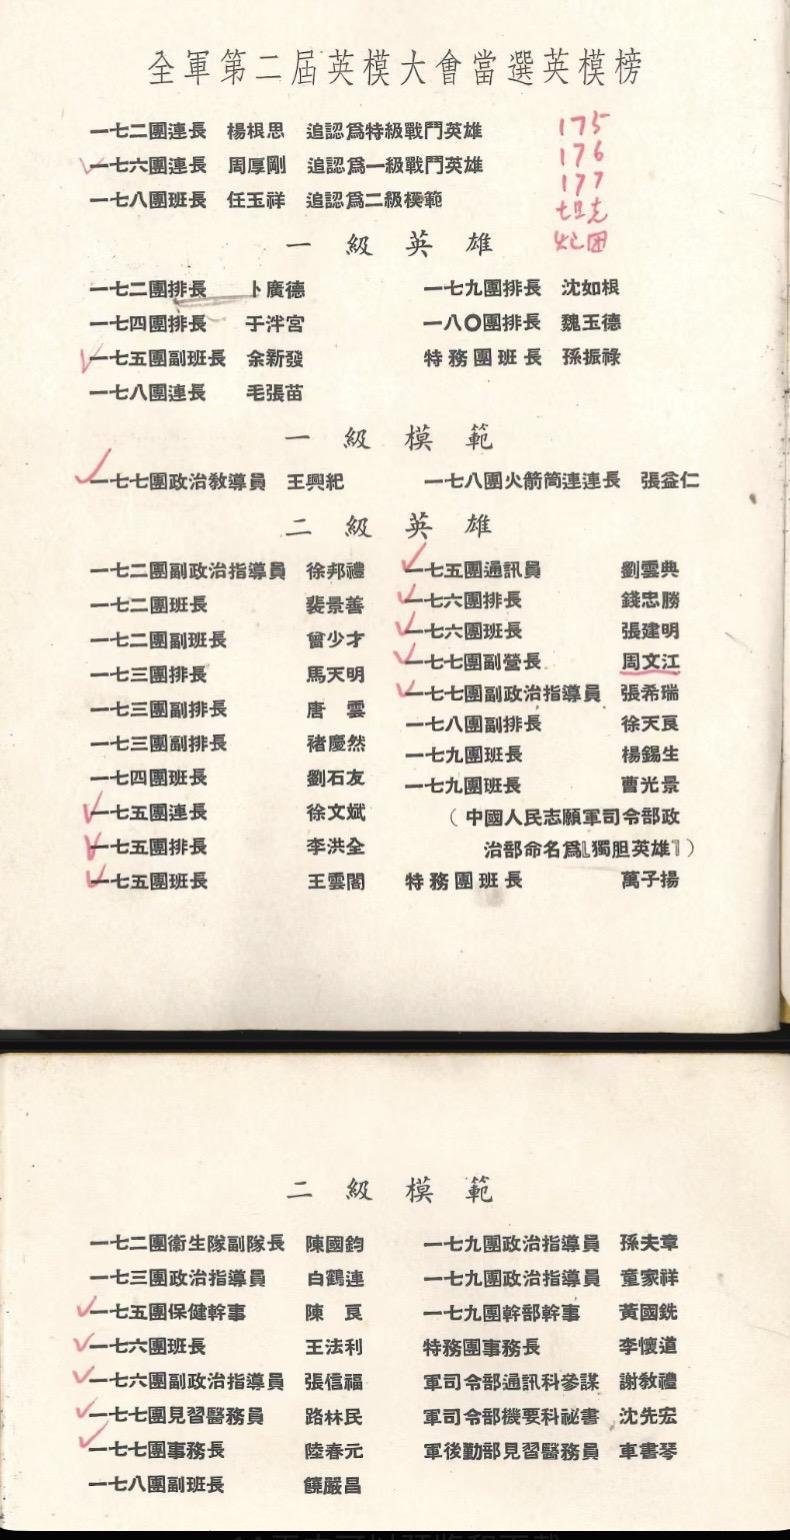 全軍第二屆英模大會當選英模榜
一七二團連長 楊根思 追認爲特級戰鬥英雄
一七六團連長 周厚剛 追認爲一級戰鬥英雄
一七八團班長 任玉祥 追認爲二級模範
175
176
177
坦克
炮团
一級英雄
一七二團排長 卜廣德
一七四團排長 于泮宮
一七五團副班長 余新發
一七八團連長 毛張苗
一七九團排長 沈如根
一八〇團排長 魏玉德
特務團班長 孫振祿
一級模範
一七七團政治教導員 王興紀
一七八團火箭筒連連長 張益仁
二級英雄
一七二團副政治指導員 徐邦禮
一七二團班長 裴景善
一七二團副班長 曾少才
一七三團排長 馬天明
一七三團副排長 唐雲
一七三團副排長 褚慶然
一七四團班長 劉石友
一七五團連長 徐文斌
一七五團排長 李洪全
一七五團班長 王雲閣
一七五團通訊員 劉雲典
一七六團排長 錢忠勝
一七六團班長 張建明
一七七團副營長 周文江
一七七團副政治指導員 張希瑞
一七八團副排長 徐天良
一七九團班長 楊錫生
一七九團班長 曹光景
（中國人民志願軍司令部政
治部命名爲『獨胆英雄』）
特務團班長 萬子揚
二級模範
一七二團衞生隊副隊長 陳國鈞
一七三團政治指導員 白鶴連
一七五團保健幹事 陳良
一七六團班長 王法利
一七六團副政治指導員 張信福
一七七團見習醫務員 路林民
一七七團事務長 陸春元
一七八團副班長 饒嚴昌
一七九團政治指導員 孫夫章
一七九團政治指導員 童家祥
一七九團幹部幹事 黃國銑
特務團事務長 李懷道
軍司令部通訊科參謀 謝教禮
軍司令部機要科祕書 沈先宏
軍後勤部見習醫務員 車書琴